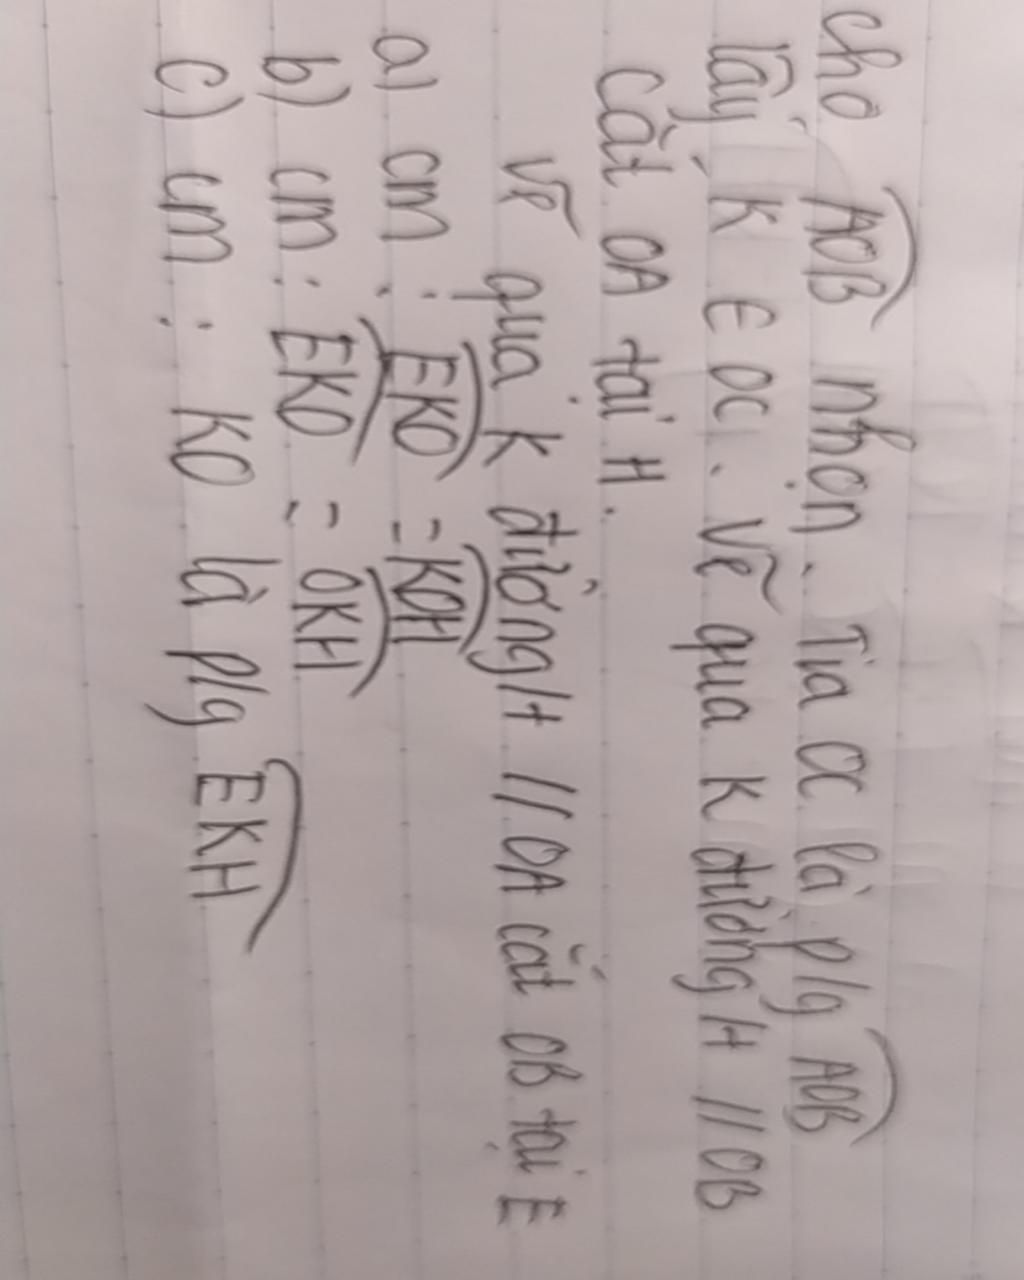 cho AOB nhọn. Tia OC là p/g AOB
lấy K ∈ OC. Vẽ qua K đường/t // OB
cắt OA tại H.
Vẽ qua K đường/t // OA cắt OB tại E
a) cm : EKO = KOH
b) cm : EKO = OKH
c) cm : KO là p/g EKH